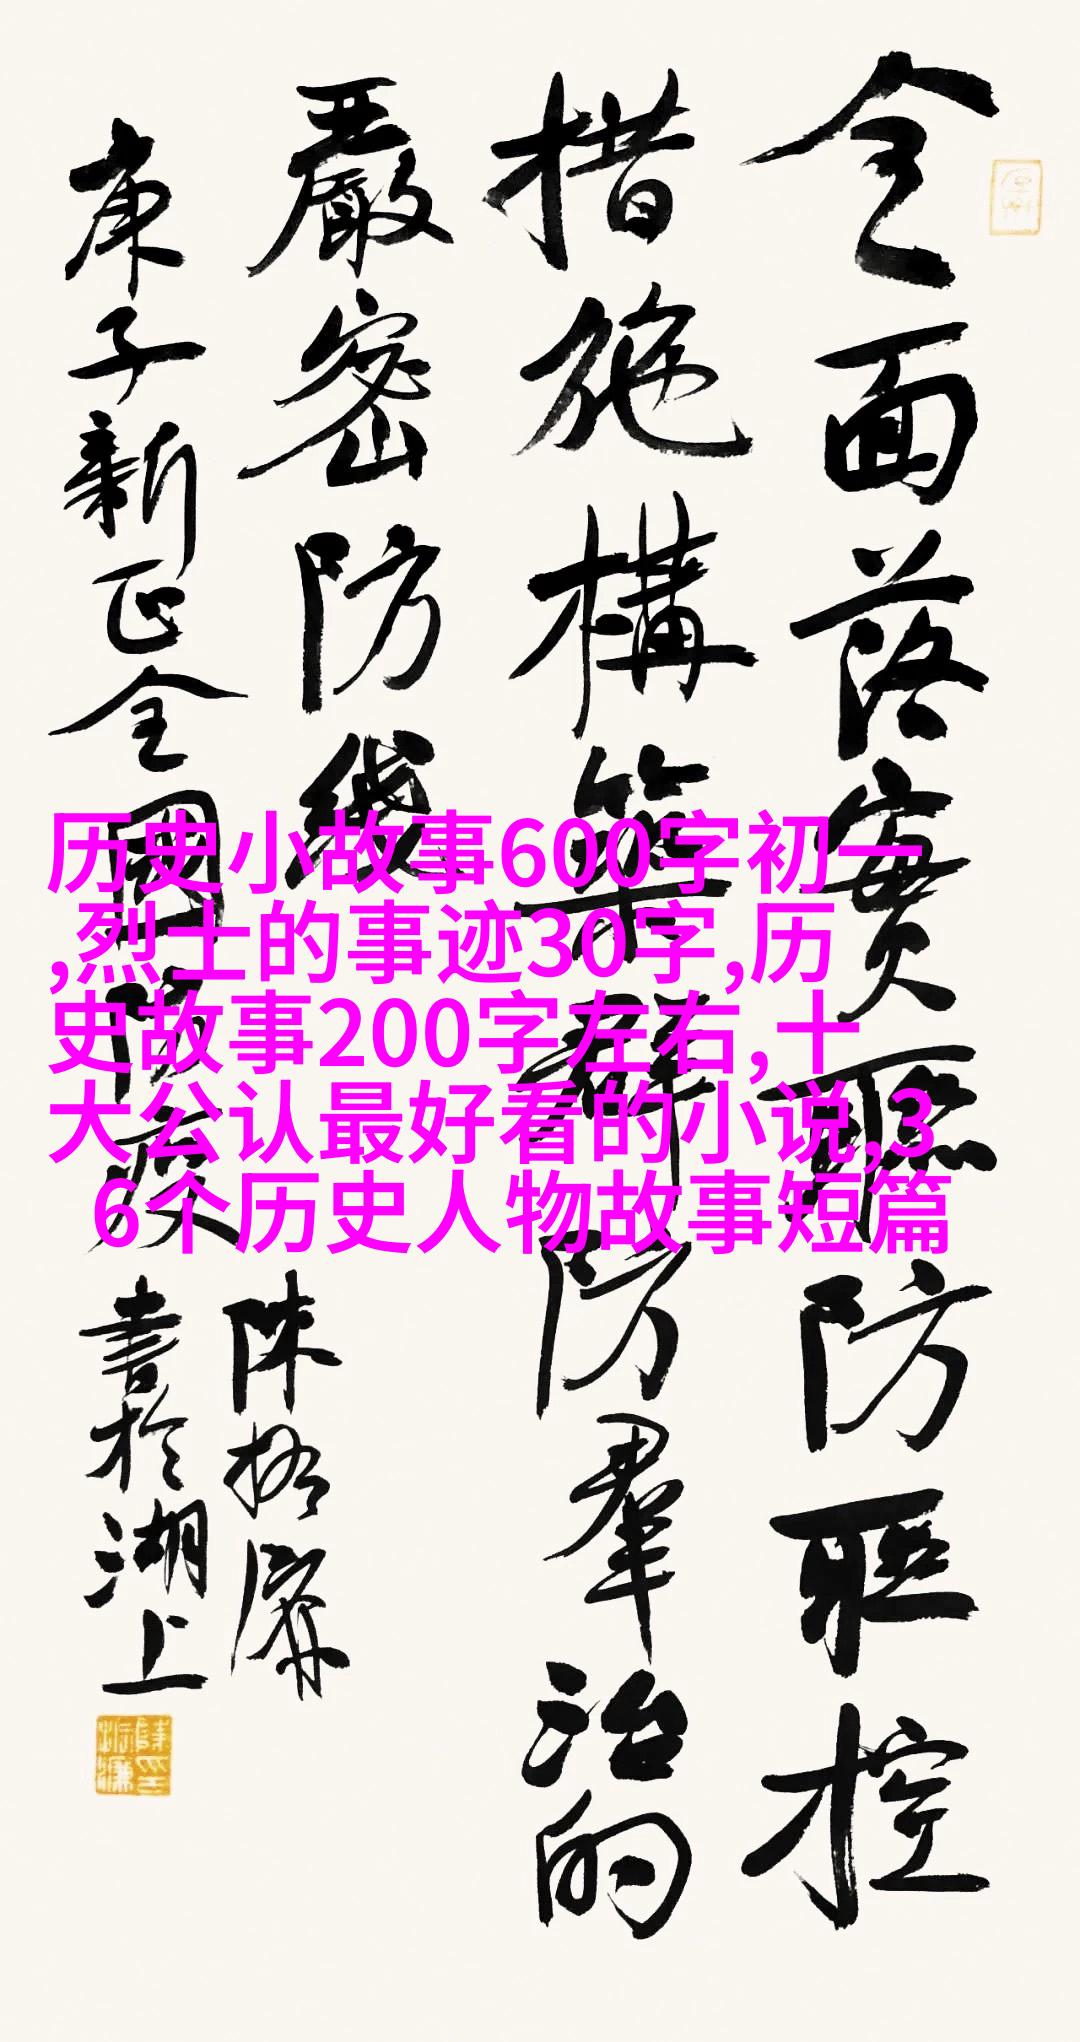 全面落實聯防聯控
措施構築群防羣治的
嚴密防线
庚子新正全國防疫
陳振濂
書於湖上
历史小故事600字初一
,烈士的事迹30字,历
史故事200字左右,十
大公认最好看的小说,3
6个历史人物故事短篇